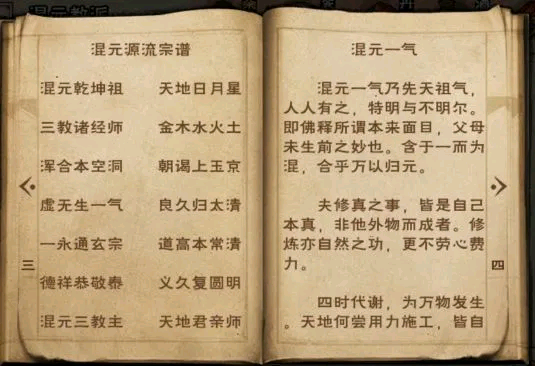 混元源流宗谱
混元乾坤祖 天地日月星
三教诸经师 金木水火土
浑合本空洞 朝谒上玉京
虚无生一气 良久归太清
一永通玄宗 道高本常清
德祥恭敬泰 义久复圆明
混元三教主 天地君亲师
三
混元一气
混元一气乃先天祖气，
人人有之，特明与不明尔。
即佛释所谓本来面目，父母
未生前之妙也。含于一而为
混，合乎万以归元。
夫修真之事，皆是自己
本真，非他外物而成者。修
炼亦自然之功，更不劳心费
力。
四时代谢，为万物发生
。天地何尝用力施工，皆自
四